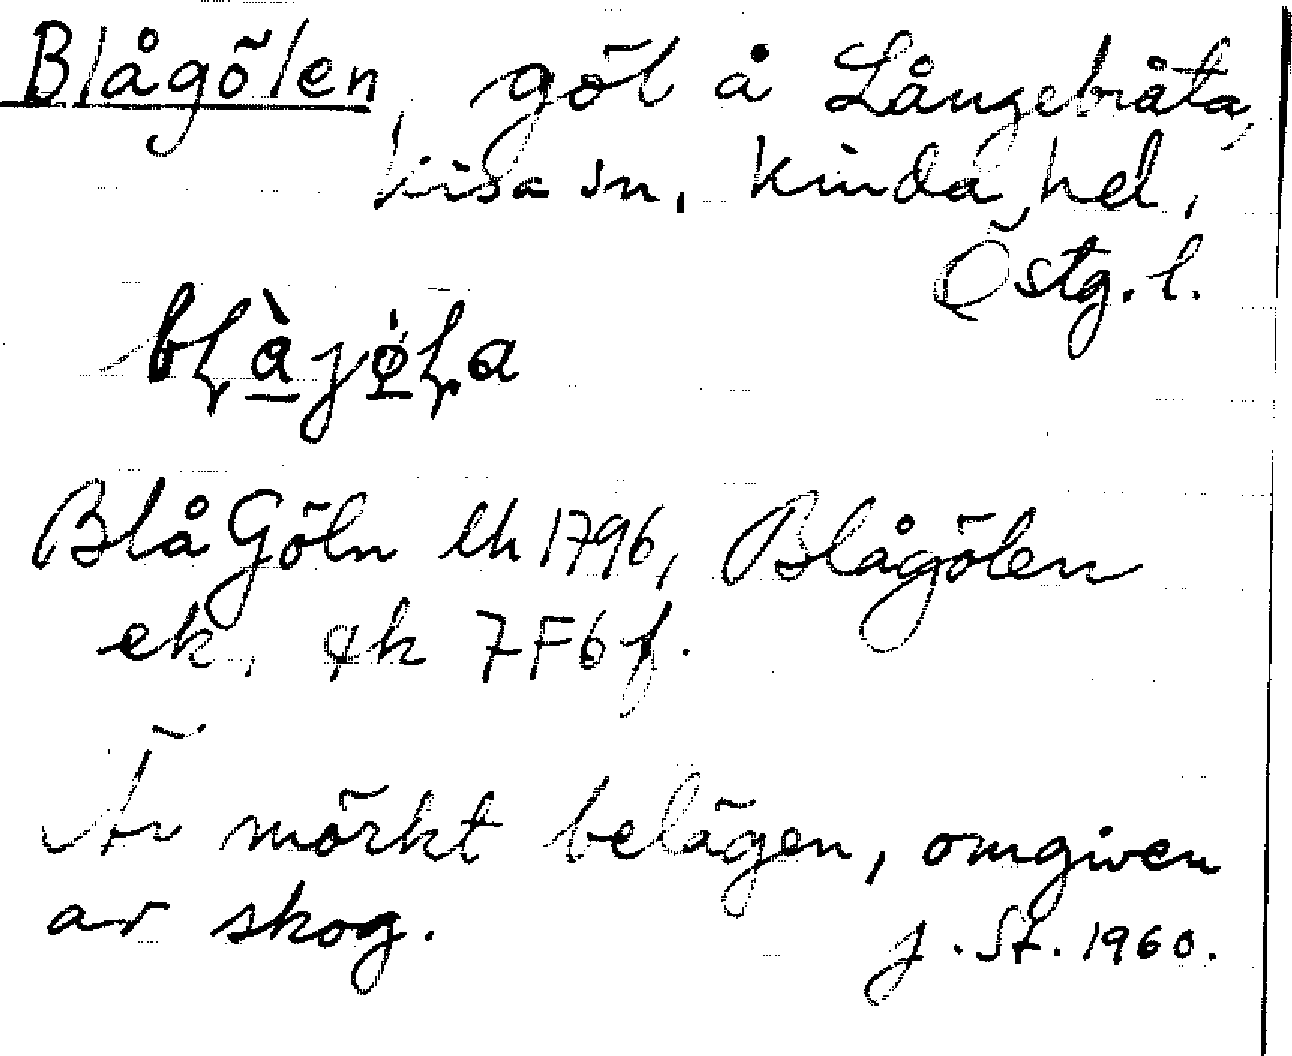 Blågölen, göl å Långebråta,
Kisa sn, Kinda hd,
Östg. l.
Blå Göln lh 1796, Blågölen
ek. 7F6f.
Är mörkt belägen, omgiven
av skog.
J. St. 1960.